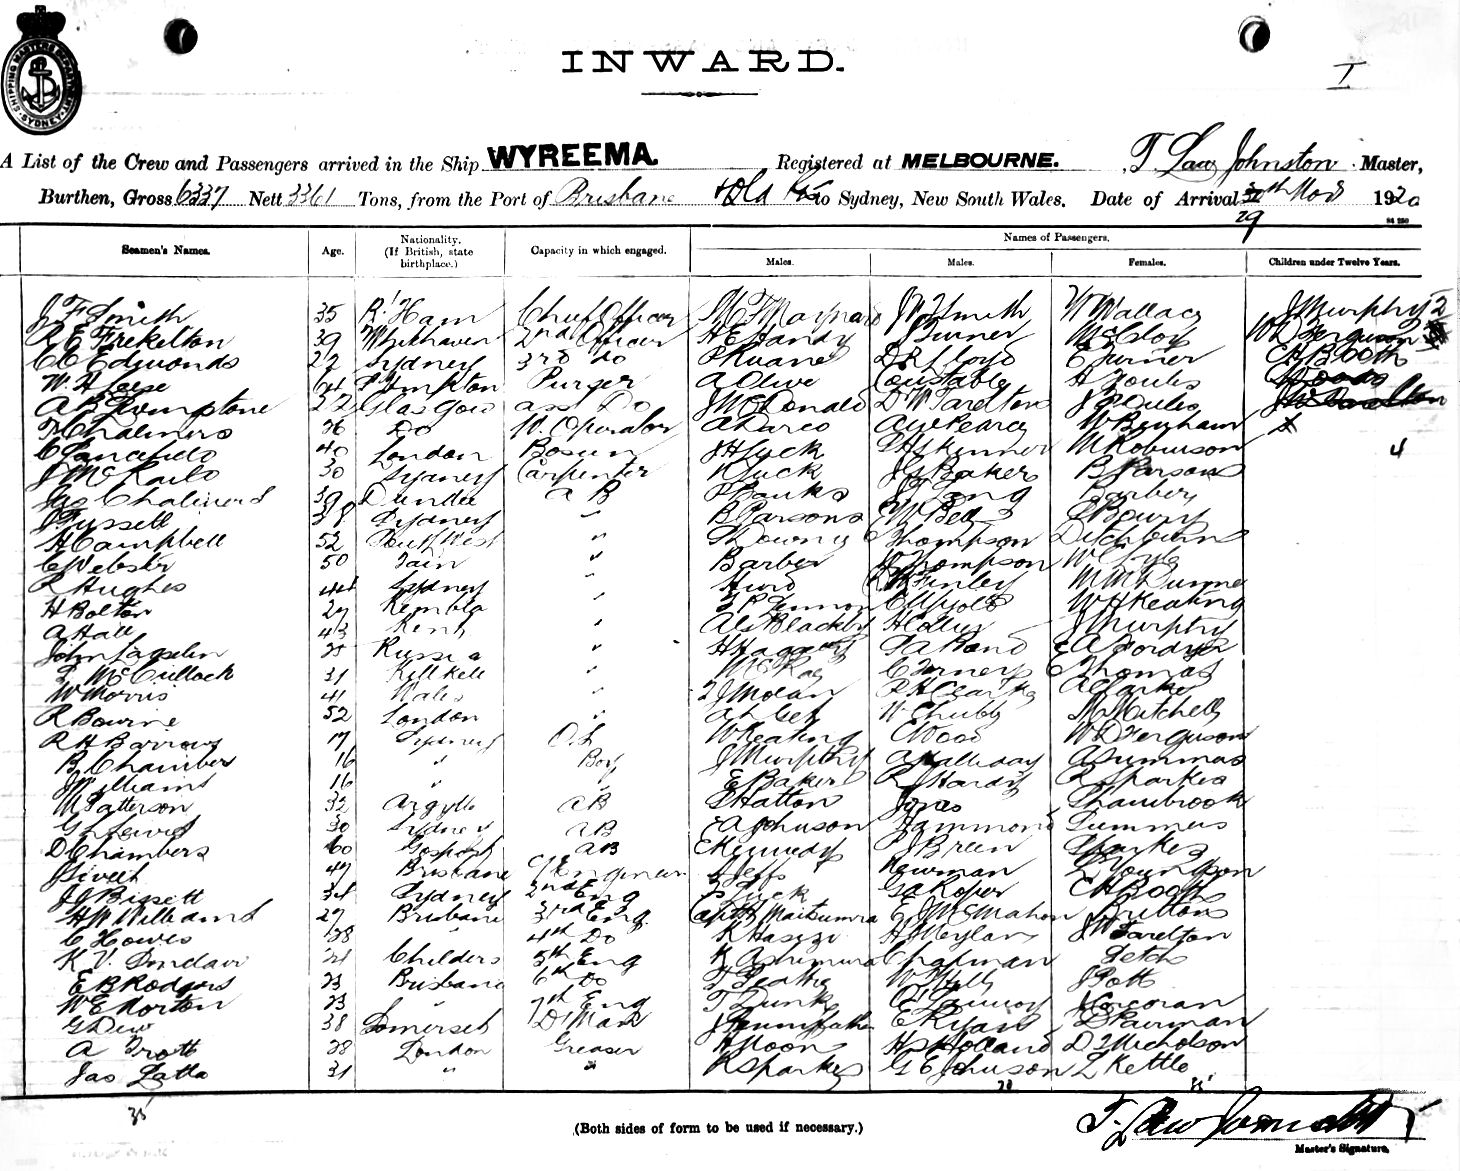 SHIPPING MASTER'S DEPARTMENT SYDNEY
INWARD.
I
A List of the Crew and Passengers arrived in the Ship WYREEMA. Registered at MELBOURNE. T Law Johnston Master,
Burthen, Gross 6337 Nett 3361 Tons, from the Port of Brisbane to Sydney, New South Wales. Date of Arrival 29 th Nov 1920
Seamen's Names. Age. Nationality. (If British, state birthplace.) Capacity in which engaged. Names of Passengers.
Males. Males. Females. Children under Twelve Years.
J F Smith 35 Chief Officer M F Maynard J W Smith W Wallace J Murphy 2
R E Frekelton 39 Whitehaven 2nd Officer H E Handy J Turner McEloy W D Ferguson
C C Edmonds 27 Sydney 3rd Do P Ruane D R Lloyd E Turner C H Booth
W H Leese 64 Purser A Olive Constable H Youles
A B Livingstone 22 Glasgow asst Do J McDonald D W Tarelton J Youles
T Chalmers 26 Do W. Operator A Darco A W Pearce W Bingham
40 London Bosun J H Luck F H Skinner M Robinson 4
30 Sydney Carpenter R Luck J G Baker B Parsons
Jas Chalmers 39 Dundee A B P Banks J Lang Barbery
J Russell 38 Sydney " B Parsons E W Bell E Bowry
H Campbell 52 South West " G Downey Thompson Ditchburn
C Webster 50 Tain " Barber J Thompson W Lyle
R Hughes 44 Sydney " Hurd Finley M M Dunne
H Bolton 27 Kembla " W H Keating
A Hall 43 Kent " A L Blackley H Colley J Murphy
John Lagselin 25 Russia " H Haggerty G A Bond E A Fordyce
McCullock 31 " McRae C Verney C Thomas
W Morris 41 Wales " T J Moran R H Clarke A Clarke
R Bourne 52 London " W Chubb M Mitchell
R H Barrows 17 Sydney O.S W Keating C Wood W D Ferguson
B Chambers 16 " Boy J Murphy A Halliday A Summas
J Williams 16 " " E Baker R J Hardy R Sparkes
W Patterson 32 Argyle A B S Hatton Jones Shambrook
G Lewis 30 Sydney A B E A Johnson Hammond Summers
D Chambers 60 Gosport A B E Kennedy P J Breen Sparkes
J Sivelt 47 Brisbane C/Engineer Jeffs Newman L Youngson
J J Bissett 34 Sydney 2nd Eng Luck G A Roper C H Booth
H W Williams 27 Brisbane 3rd Eng Capt Maitsumra E J McMahon Britton
C Howes 28 " 4th Do K Haseji H Meylan J W Tarelton
K V Sinclair 21 Childers 5th Eng K Ashimura Chapman Fetch
E B Rodgers 23 Brisbane 6th Do T Beattie W Mills J Pott
W E Norton 23 " 7th Eng T Dunk J Corcoran
G Dew 38 Somerset D/Man E Ryan D Pairman
A Trott 28 London Greaser H Moon H S Holland D Nicholson
Jas Latta 31 " " R Sparkes G E Johnson L Kettle
35 28 35
(Both sides of form to be used if necessary.)
T. Law Johnston
Master's Signature.